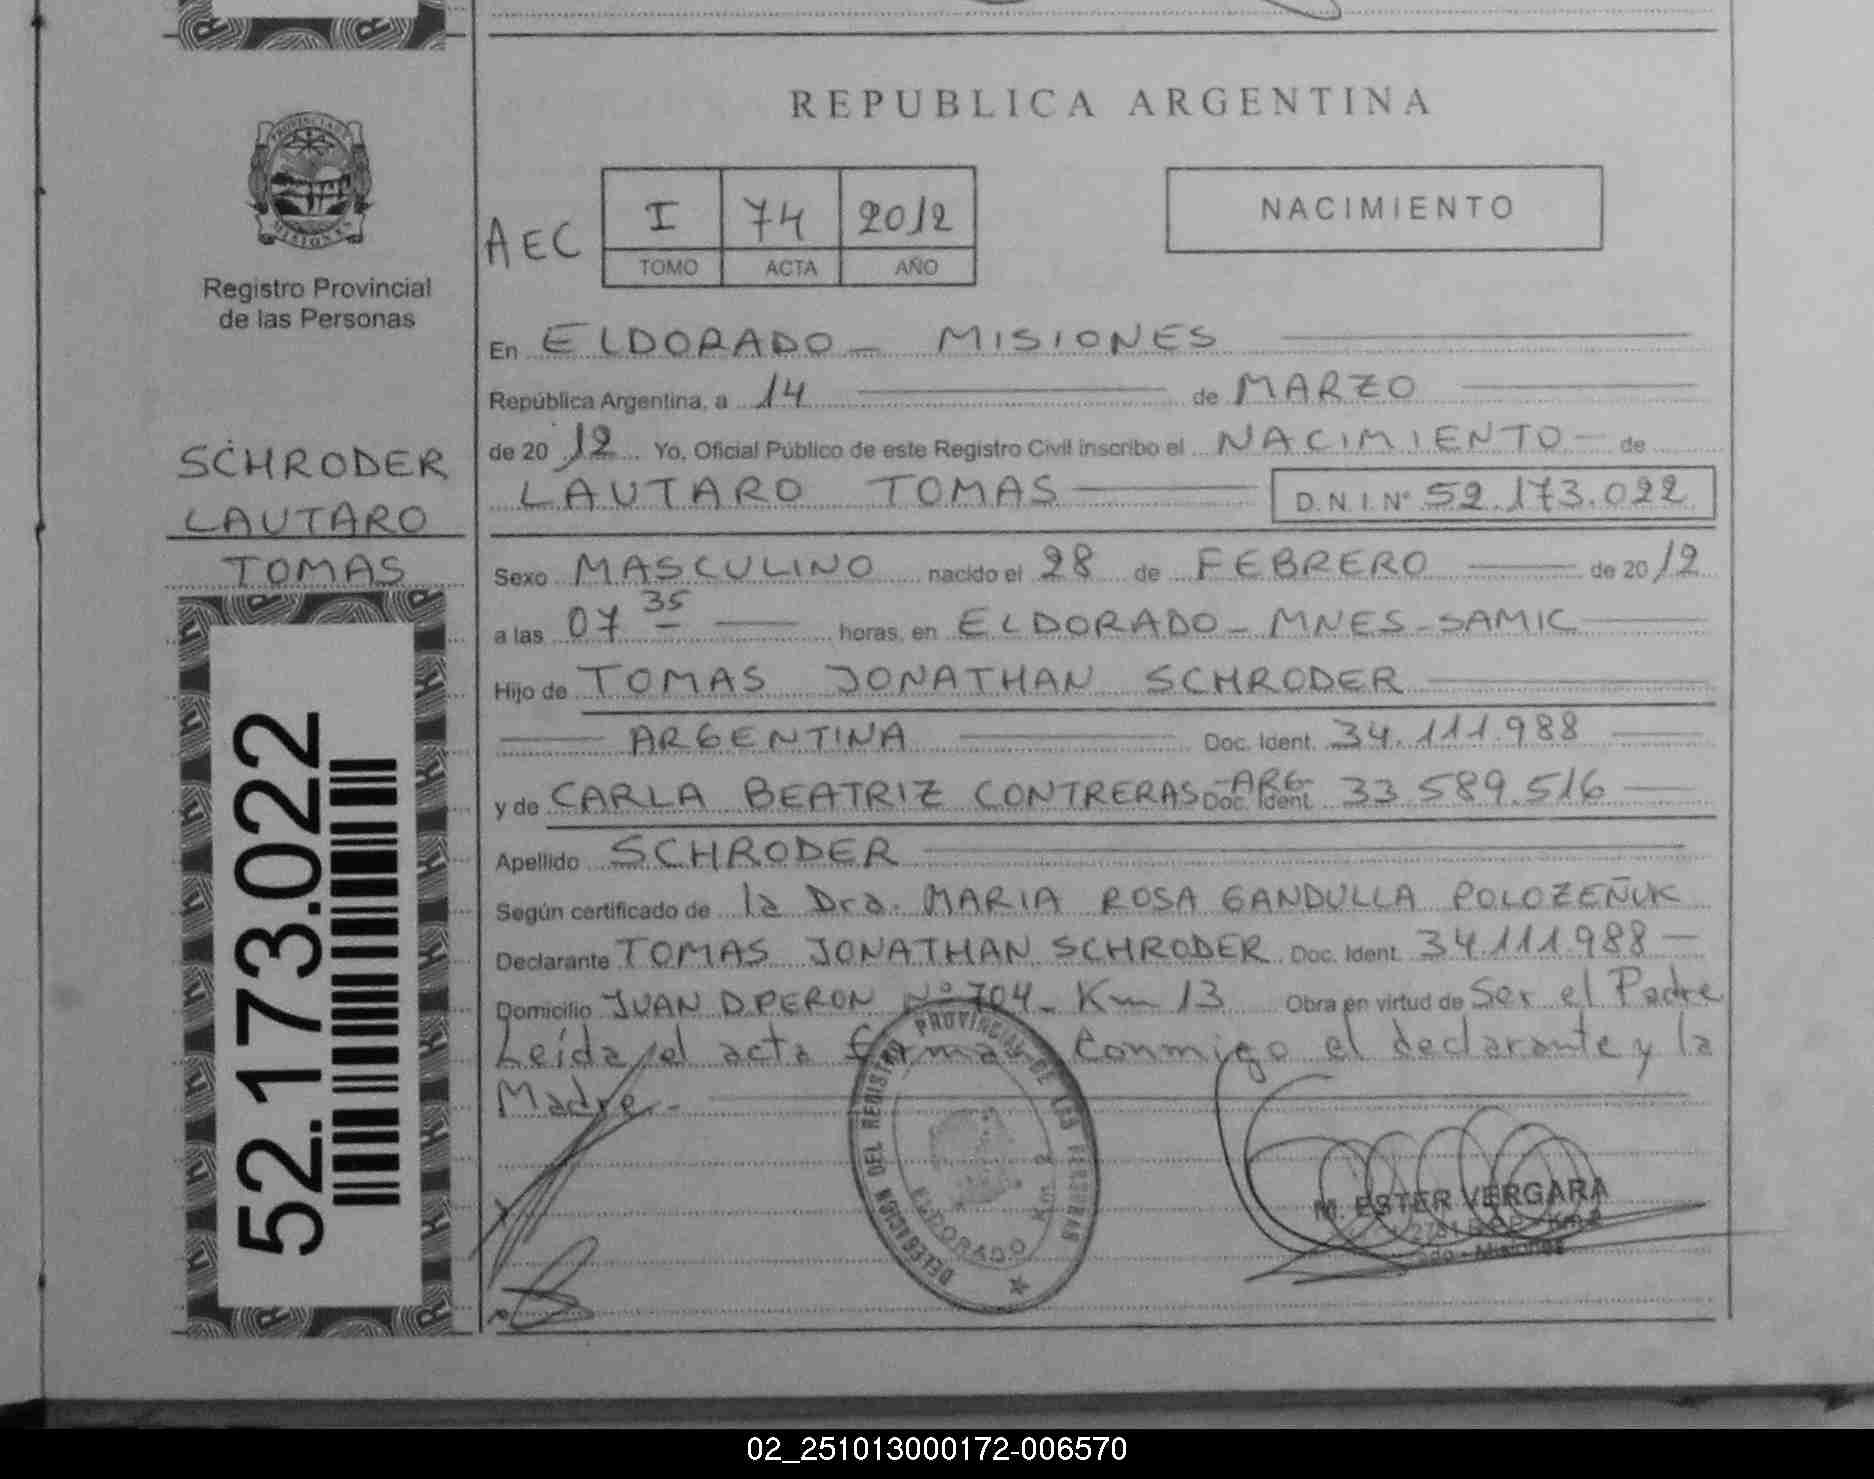 REPUBLICA ARGENTINA
PROVINCIA DE
MISIONES
Registro Provincial
de las Personas
AEC
I 74 2012
TOMO ACTA AÑO
NACIMIENTO
En ELDORADO - MISIONES
República Argentina, a 14 de MARZO
de 20 12 Yo, Oficial Público de este Registro Civil inscribo el NACIMIENTO - de
LAUTARO TOMAS D.N.I.Nº 52.173.022
SCHRODER
LAUTARO
TOMAS
Sexo MASCULINO nacido el 28 de FEBRERO de 20 12
a las 07 35 horas, en ELDORADO - MNES - SAMIC
Hijo de TOMAS JONATHAN SCHRODER
ARGENTINA Doc. Ident. 34.111.988
y de CARLA BEATRIZ CONTRERAS - ARG - Doc. Ident. 33 589.516
Apellido SCHRODER
Según certificado de la Dra. MARIA ROSA GANDULLA POLOZEÑUK
Declarante TOMAS JONATHAN SCHRODER Doc. Ident. 34.111.988 -
Domicilio JUAN D.PERON Nº 704 - Km 13 Obra en virtud de Ser el Padre
Leída el acta firman conmigo el declarante y la
Madre. -
52.173.022
DELEGACION DEL REGISTRO PROVINCIAL DE LAS PERSONAS
ELDORADO Km 2
M. ESTER VERGARA
Misiones
02_251013000172-006570